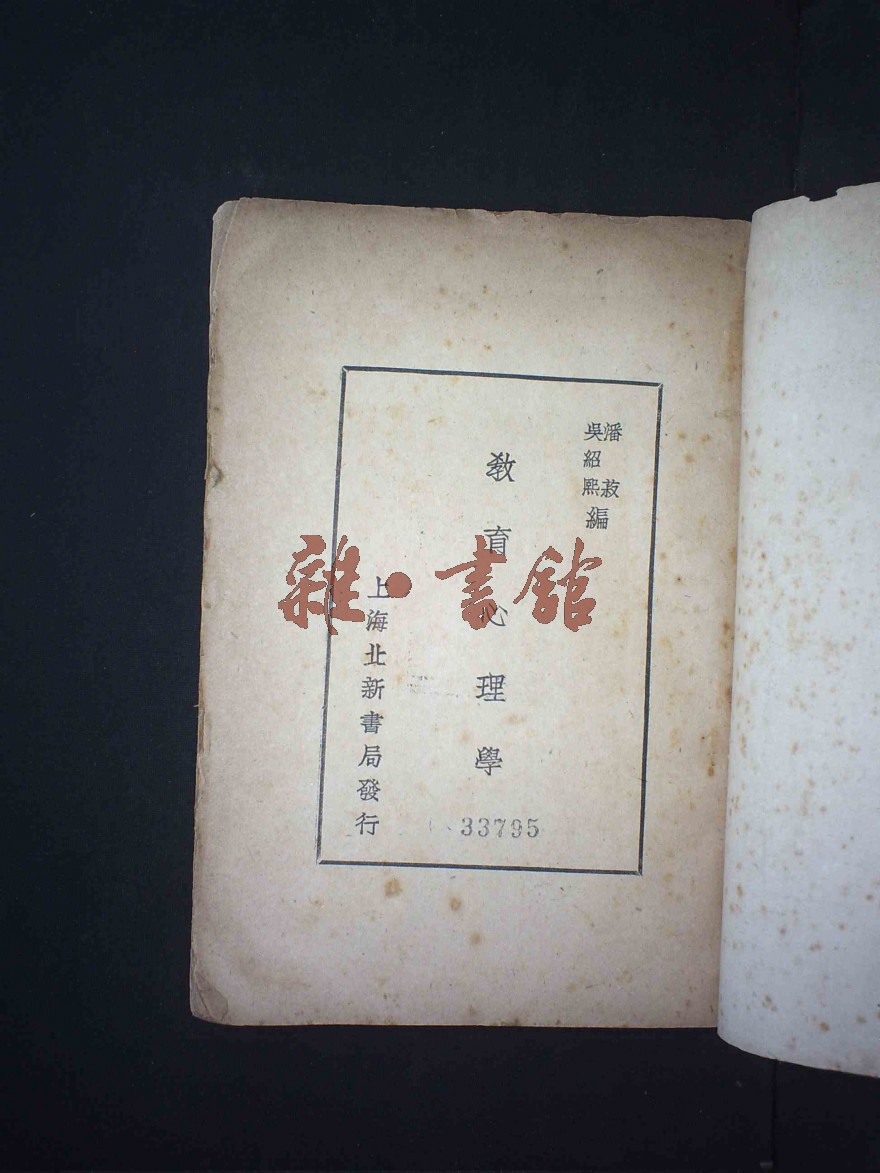 潘菽
吳紹熙編
教育心理學
上海北新書局發行
33795
雜·書館